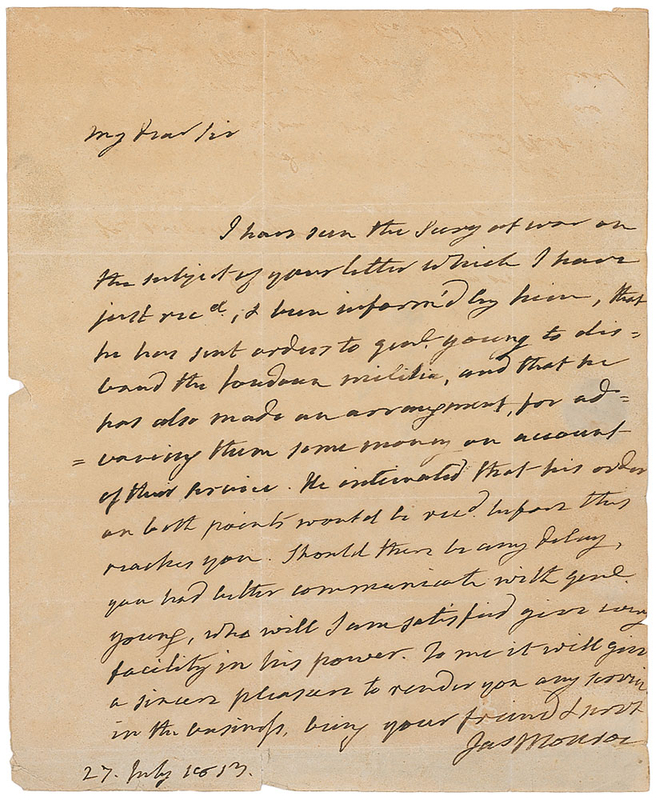 My dear Sir
I have seen the Secry of war on
the subject of your letter which I have
just recd., & been inform'd by him, that
he has sent orders to genl. young to dis=
band the Loudoun militia, and that he
has also made an arrangement, for ad=
=vancing them some money on account
of their service. He intimated that his order
on both points would be recd. before this
reaches you. Should there be any delay,
you had better communicate with genl.
young, who will I am satisfied give every
facility in his power. To me it will give
a sincere pleasure to render you any service
in the business, being your friend & servt
Jas Monroe
27. July 1813.